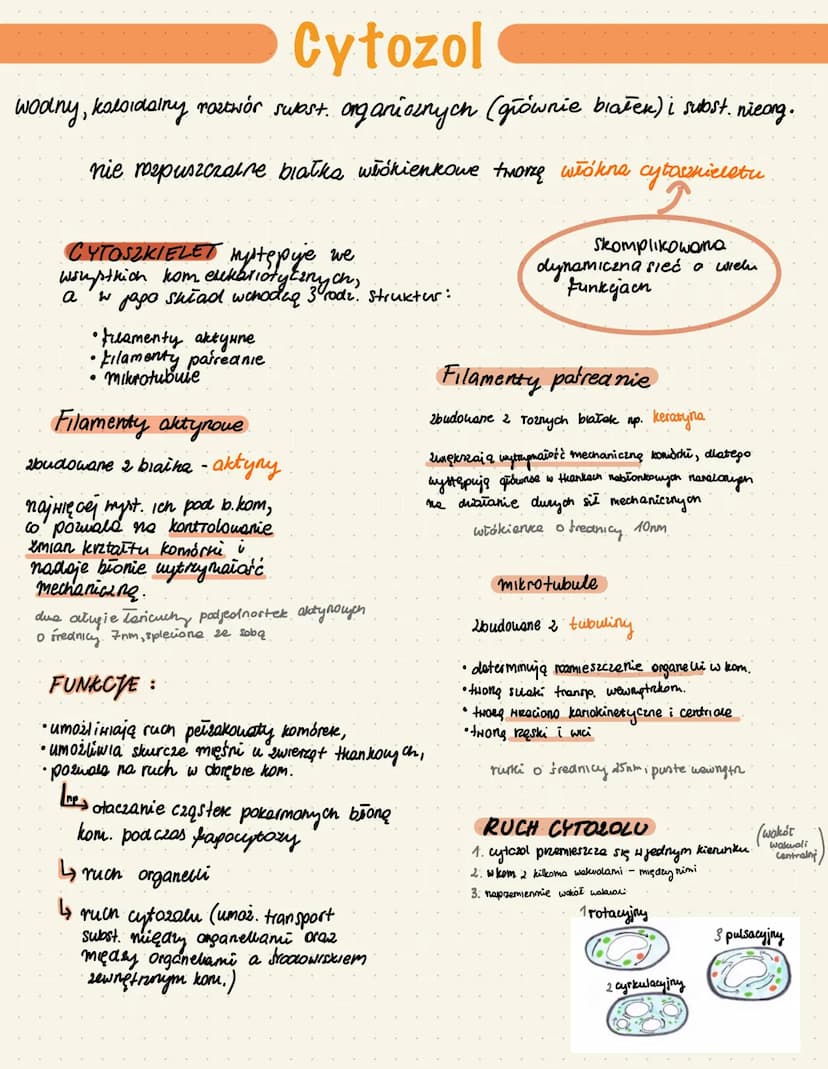 Cytozol
wodny, koloidalny roztwór subst. organicznych (głównie białek) i subst. nieorg.
nie rozpuszczalne białka włókienkowe tworzą włókna cytoszkieletu
Skomplikowana
dynamiczna sieć o wielu
funkcjach
CYTOSZKIELET występuje we
wszystkich kom eukariotycznych,
a w jego skład wchodzą 3 rodz. struktur:
• filamenty aktynowe
• filamenty pośrednie
• mikrotubule
Filamenty aktynowe
zbudowane z białka - aktyny
najwięcej wyst. ich pod b.kom,
co pozwala na kontrolowanie
zmian kształtu komórki i
nadaje błonie wytrzymałość
mechaniczną.
dwa długie łańcuchy podjednostek aktynowych
o średnicy 7nm, splecione ze sobą
FUNKCJE :
• umożliwiają ruch pełzakowaty komórek,
• umożliwia skurcze mięśni u zwierząt tkankowych,
• pozwala na ruch w obrębie kom.
np. otaczanie cząstek pokarmowych błoną
kom. podczas fagocytozy
↳ ruch organelli
↳ ruch cytozolu (umoż. transport
subst. między organellami oraz
między organellami a środowiskiem
zewnętrznym kom.)
Filamenty pośrednie
zbudowane z różnych białek np. keratyna
zwiększają wytrzymałość mechaniczną komórki, dlatego
występują głównie w tkankach nabłonkowych narażonych
na działanie dużych sił mechanicznych
włókienka o średnicy 10nm
mikrotubule
zbudowane z tubuliny
• determinują rozmieszczenie organelli w kom.
• tworzą szlaki transp. wewnątrzkom.
• tworzą wrzeciono kariokinetyczne i centriole
• tworzą rzęski i wici
rurki o średnicy 25nm i puste wewnątrz
RUCH CYTOZOLU
1. cytozol przemieszcza się w jednym kierunku (wokół
wakuoli
centralnej)
2. w kom z kilkoma wakuolami - między nimi
3. naprzemiennie wokół wakuoli
1 rotacyjny
3 pulsacyjny
2 cyrkulacyjny